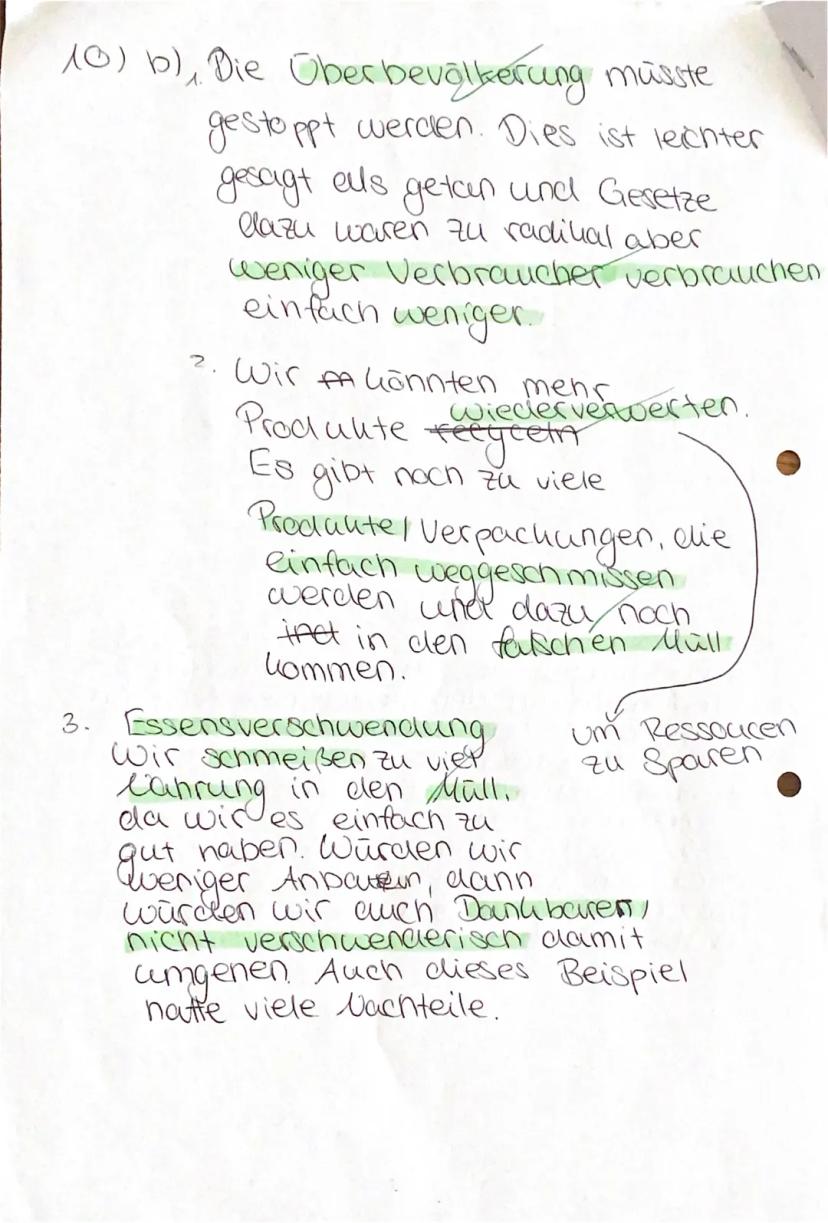 10) b) 1. Die Überbevölkerung müsste
gestoppt werden. Dies ist leichter
gesagt als getan und Gesetze
dazu wären zu radikal aber
weniger Verbraucher verbrauchen
einfach weniger.
2. Wir könnten mehr
Produkte recyceln wiederverwerten.
Es gibt noch zu viele
Produkte/Verpackungen, die
einfach weggeschmissen
werden und dazu noch
in den falschen Müll
kommen.
um Ressoucen
zu Sparen
3. Essensverschwendung
Wir schmeißen zu viel
Nahrung in den Müll,
da wir es einfach zu
gut haben. Würden wir
weniger Anbauen, dann
würden wir auch Dankbarer,
nicht verschwenderisch damit
umgehen. Auch dieses Beispiel
hätte viele Nachteile.